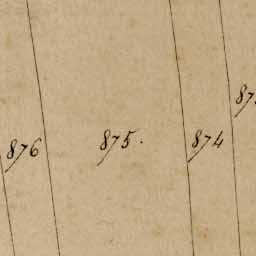 876 875. 874